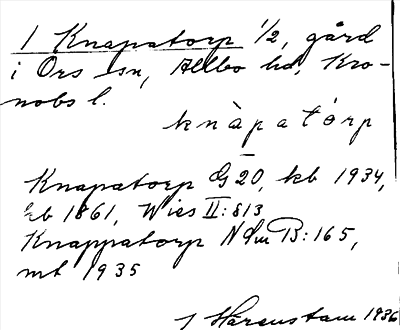 1 Knapatorp 1/2, gård
i Ors sn, Allbo hd, Kro-
nobs l.
knàpatórp
Knapatorp G 20, kb 1934,
kb 1861, Wies II:813
Knappatorp NdmB:165,
mt 1935
Harenstam 1936